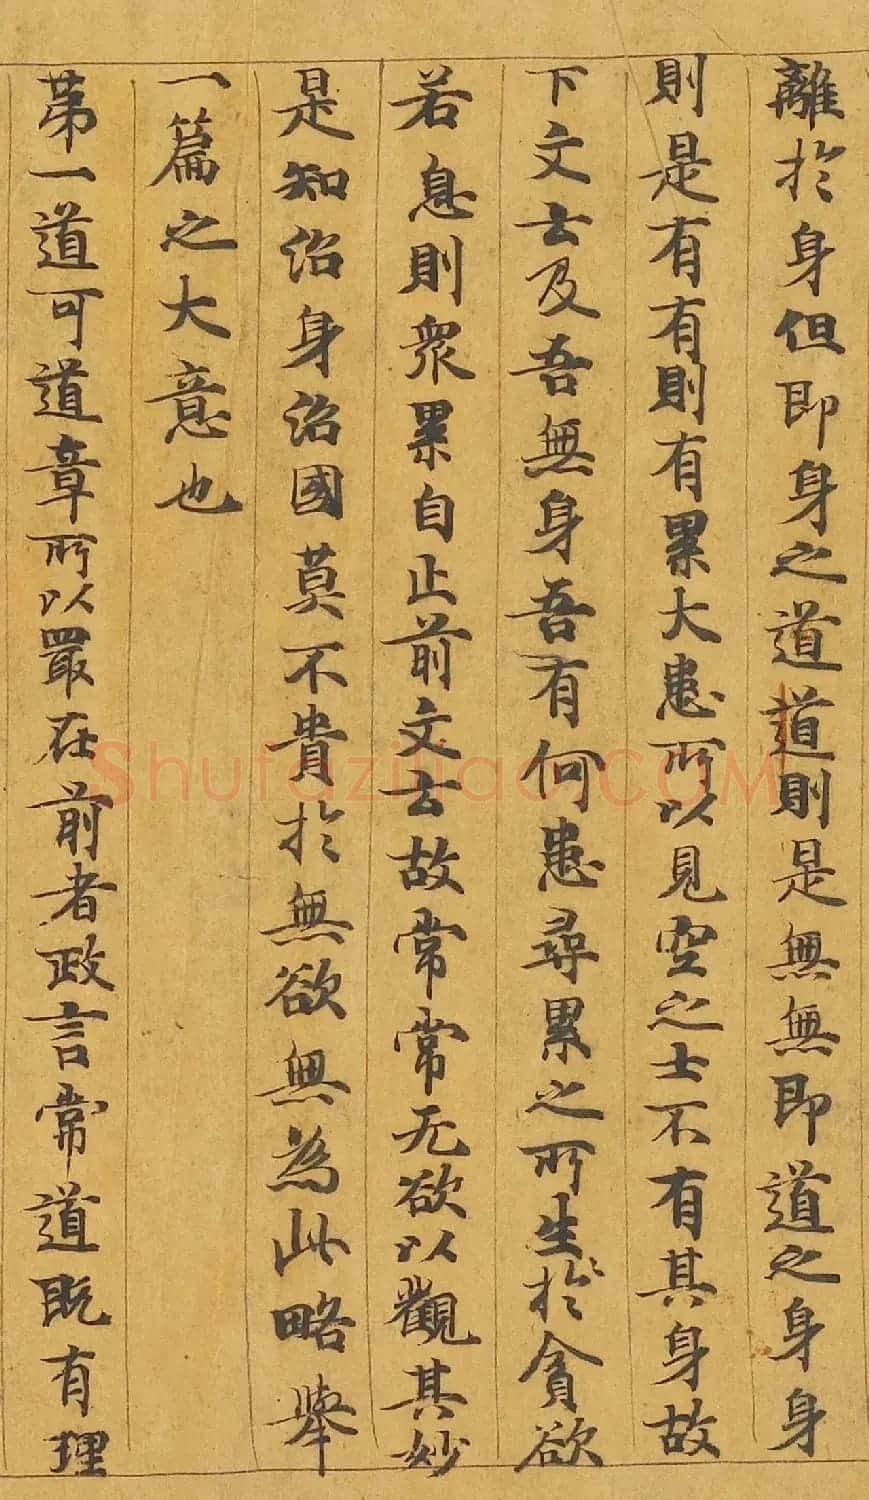 離於身但即身之道道則是無無即道之身身
則是有有則有累大患所以見空之士不有其身故
下文云及吾無身吾有何患尋累之所生於貪欲
若息則衆累自止前文云故常常无欲以觀其妙
是知治身治國莫不貴於無欲無為此略舉
一篇之大意也
第一道可道章所以最在前者政言常道既有理
Shufaziliao.COM